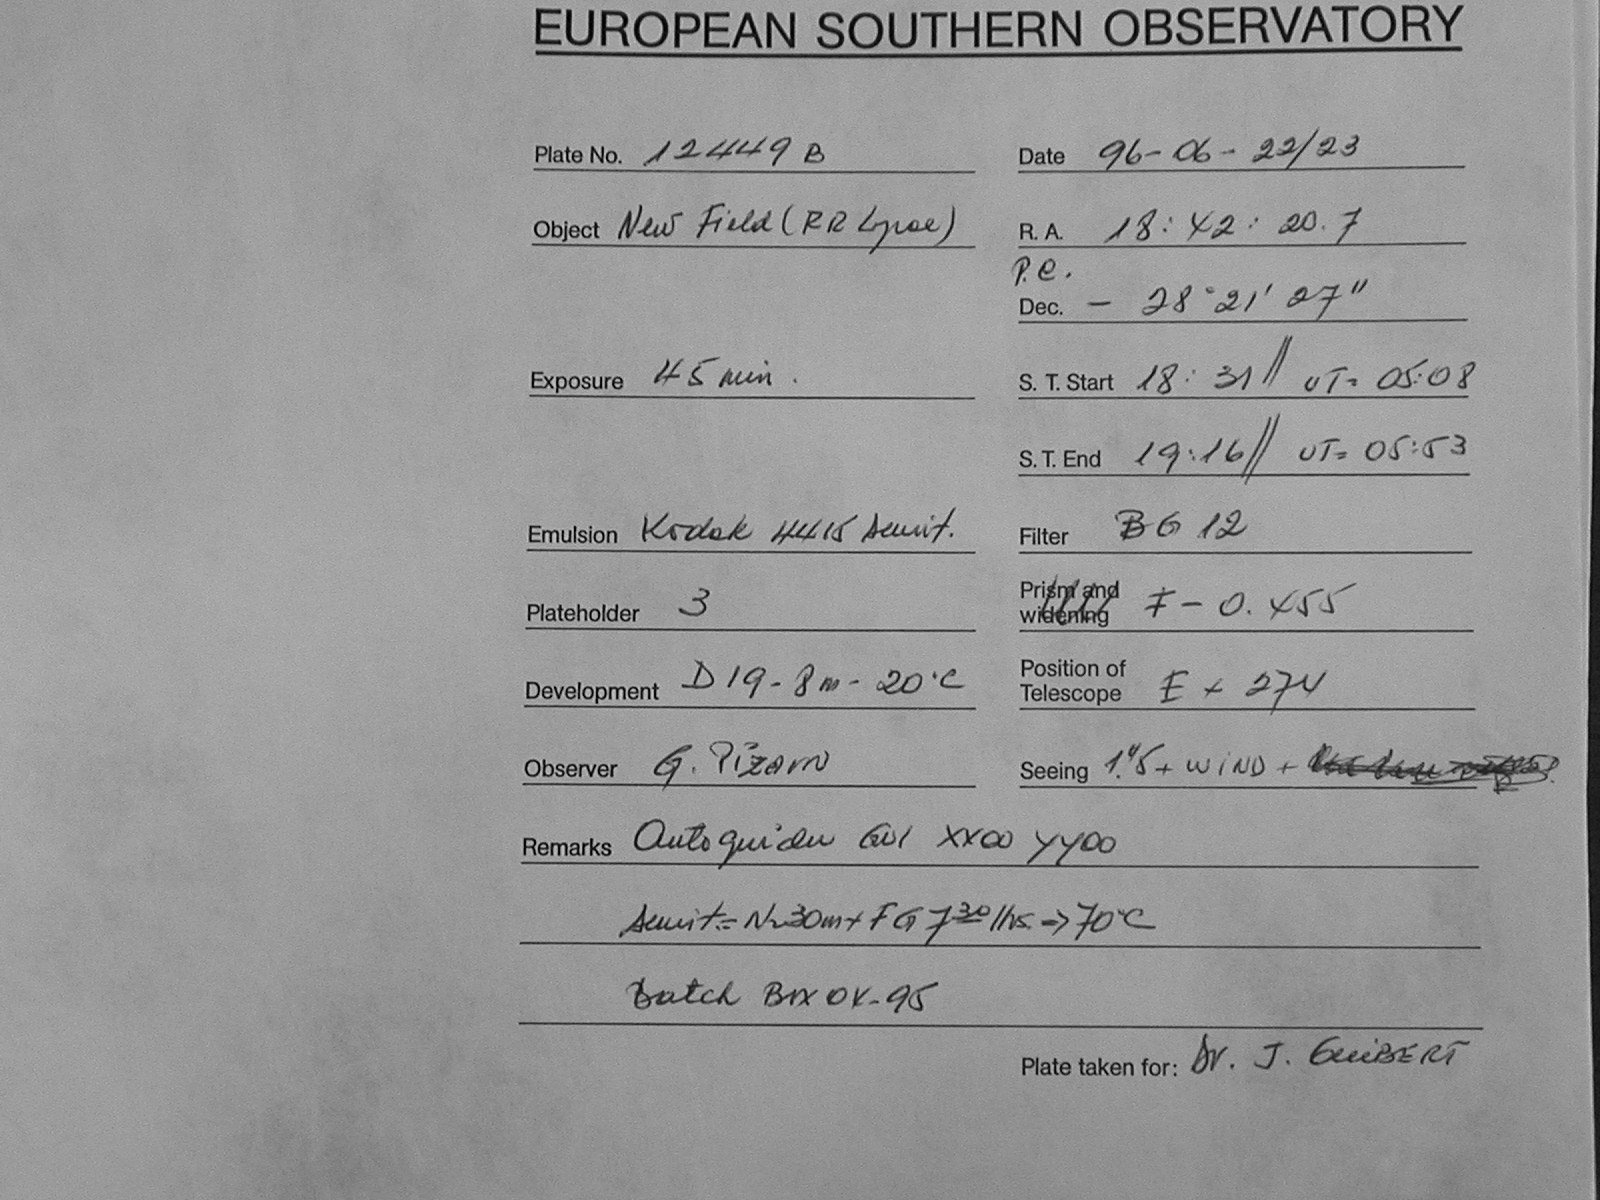 EUROPEAN SOUTHERN OBSERVATORY
Plate No. 12449 B
Date 96-06-22/23
Object New Field (RR Lyrae)
R. A. 18: 42: 20.7
P.e.
Dec. - 28°21' 27"
Exposure 45 min.
S. T. Start 18: 31// UT= 05:08
S. T. End 19:16// UT= 05:53
Emulsion Kodak 4415
Filter BG 12
Plateholder 3
Prism and widening F - 0.455
Development D19-8m-20°C
Position of Telescope E + 274
Observer G. Pizarro
Seeing 1."5+ WIND +
Remarks Autoguider XX00 YY00
30m+ FG 7 30 hs. => 70°C
Batch Box 95
Plate taken for: Dr. J. GUIBERT